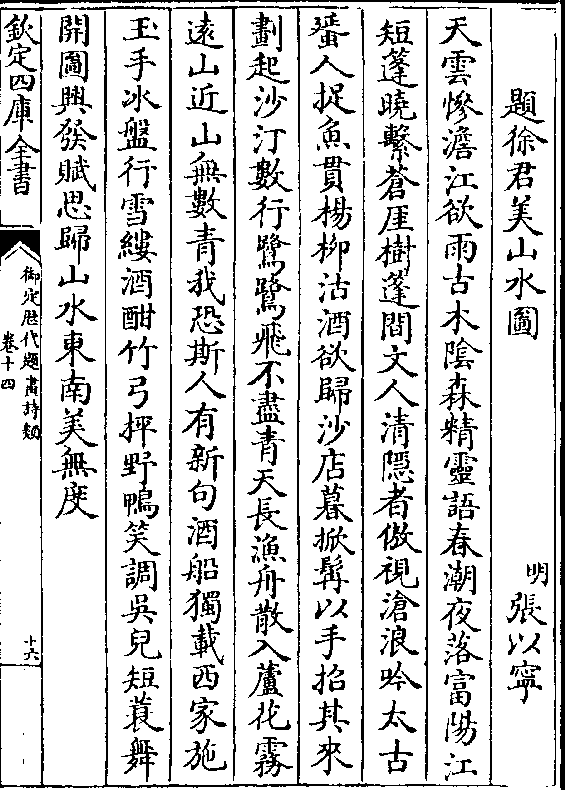 題徐君美山水圖
明張以寧
天雲慘澹江欲雨古木陰森精靈語春潮夜落富陽江
短蓬曉繫蒼厓樹蓬間文人清隱者傲視滄浪吟太古
蜑人捉魚貫楊柳沽酒欲歸沙店暮掀髯以手招其來
劃起沙汀數行鷺鷺飛不盡青天長漁舟散入蘆花霧
遠山近山無數青我恐斯人有新句酒船獨載西家施
玉手冰盤行雪縷酒酣竹弓抨野鴨笑調吳兒短蓑舞
開圖興發賦思歸山水東南美無度
欽定四庫全書
御定歷代題畫詩類
卷十四
十六